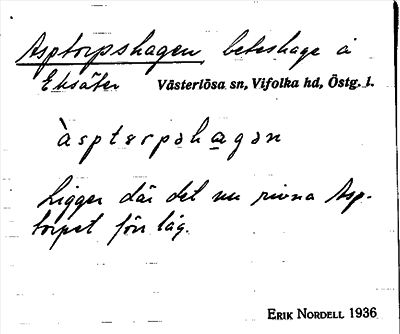 Asptorpshagen, beteshage å
Eksäter Västerlösa sn, Vifolka hd, Östg. l.
àsptɷrpshagən
Ligger där det nu rivna Asp-
torpet förr låg.
ERIK NORDELL 1936